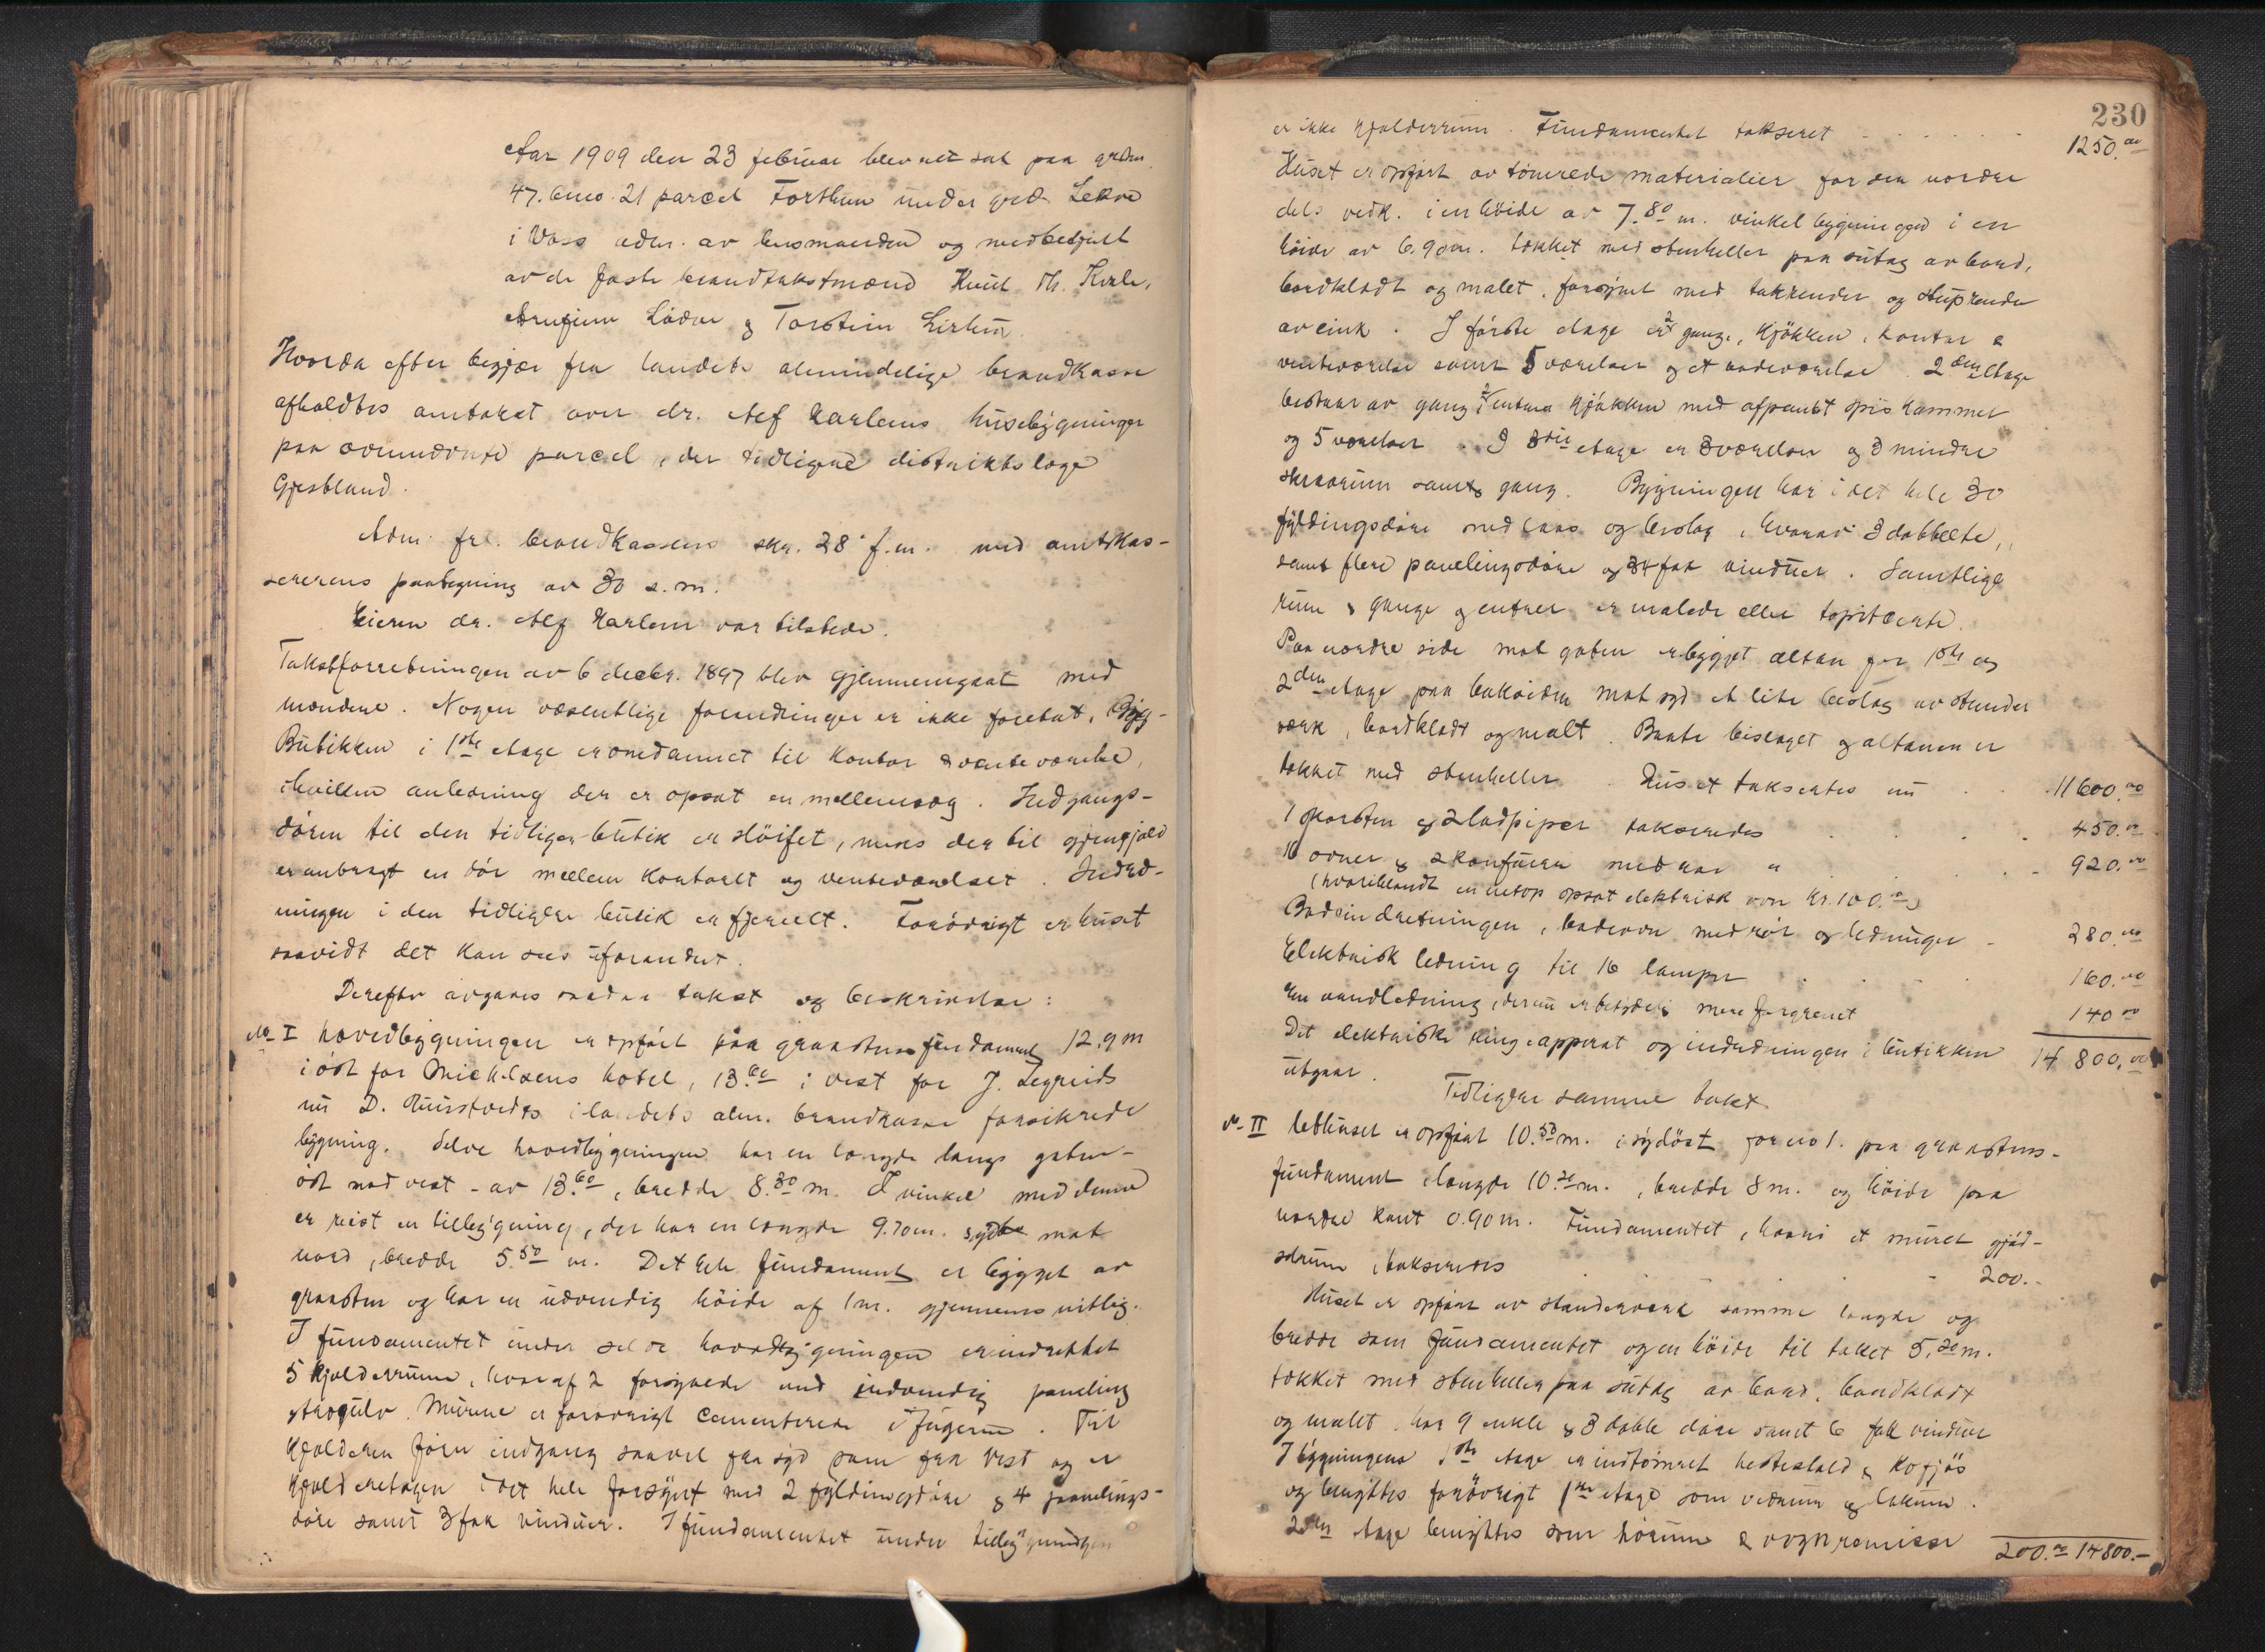 Aar 1909 den 23 februar blev ret sat paa grdn.
47. bno. 21 parcel Forthun under grd. Lekve
i Voss adm. av lensmanden og medbetjent
av de faste brandtakstmænd Knut Th. Kvale,
Arngrim Lödve & Torstein Lirhus.
Hvorda efter begjær fra landets almindelige brandkasse
afholdtes omtakst over dr. Alf Karlems husebygninger
paa ovennævnte parcel, der tidligere distriktslæge
Gjestland.
Adm. frl. brandkassens skr. 28 f.m. med amtskas-
sererens paategning av 30 s.m.
Eieren dr. Alf Karlem var tilstede.
Takstforretningen av 6 decbr. 1897 blev gjennemgaat med
mændene. Nogen væsentlige forandringer er ikke foretat.
Butikken i 1ste etage er omdannet til Kontor & venteværelse,
i hvilken anledning der er opsat en mellemvæg. Indgangs-
døren til den tidligere butik er slöifet, mens der til gjengjæld
er anbragt en dör mellem Kontoret og venteværelset. Indred-
ningen i den tidligere butik er fjernet. Forövrigt er huset
saavidt det kan sees uforandret.
Derefter avgaves saadan takst og beskrivelse:
No I hovedbygningen er opfört paa graastensfundament 12,9 m
i öst for Michelsens hotel, 13.60 i vest for J. Legreids
nu D. i landets alm. brandkasse forsikrede
bygning. Selve hovedbygningen har en længde langs gaten -
öst mod vest - av 13.60, bredde 8.30 m. I vinkel med denne
er reist en tilbygning, der har en længde 9.70 m. syd mot
nord, bredde 5.50 m. Det hele fundament er bygget av
graasten og har en udvendig höide af 1 m. gjennemsnitlig.
I fundamentet under selve hovedbygningen er indrettet
5 kjælderrum, hvoraf 2 forsynede med indvendig paneling
& trægulv. Murene er forövrigt cementerede i fugerne. Til
Kjælderen förer indgang saavel fra syd som fra vest og er
Kjælderetagen i det hele forsynt med 2 fyldingsdöre & 4 panelings-
döre samt 3 fak vinduer. I fundamentet under tilbygningen
230
er ikke kjælderrum. Fundamentet takseret . . . . . . 1250.00
Huset er opfört av tömrede materialier for den nordre
dels vedk. i en höide av 7.80 m. vinkel bygningen i en
höide av 6.90 m. tækket med stenheller paa sutag av bord,
bordklædt og malet, forsynet med takrender og stuprender
av zink. I förste etage er 2 gange, Kjökken, kontor &
venteværelse samt 5 værelser og et badeværelse. 2den etage
bestaar av gang, 2 entreer Kjökken med afpanlt spiskammer
og 5 værelser. I 3die etage er 3 værelser og 3 mindre
skraarum samt gang. Bygningen har i det hele 30
fyldingsdöre med laas og beslag, hvorav 3 dobbelte,
samt flere panelingsdöre og 34 fak vinduer. Samtlige
rum & gange og entreer er malede eller tapitserte.
Paa nordre side mot gaten er bygget altan for 1ste og
2den etage paa baksiden mot syd et lite bislag av stender
værk, bordklædt og malt. Baate bislaget og altanen er
tækket med stenheller. Huset takseredes nu . . 11600.00
1 skorsten og 2 ladpiper takseredes . . . . 450.00
10 ovner & 2 komfurer med rör " . . . . 920.00
(hvoriblandt en netop opsat elektrisk ovn kr. 100.00)
Badeindretningen, badeovn med rör og ledninger - 280.00
Elektrisk ledning til 16 lamper . . . 160.00
En vandledning, der nu er betydelig mere forgrenet 140.00
Det elektriske ringeapperat og indredningen i butikken 14 800.00
utgaar.
Tidligere samme takst.
No II Uthuset er opfört 10.50 m. i sydöst for no 1. paa graastens-
fundament længde 10.20 m., bredde 8 m. og höide paa
nordre kant 0.90 m. Fundamentet, hvori et muret gjöd-
selrum, takseredes . . . . - 200.-
Huset er opfört av stenderværk samme længde og
bredde som fundamentet og en höide til taket 5.20 m.
tækket med stenheller paa sutag av bord, bordklædt
og malet, har 9 enkle & 3 doble döre samt 6 fak vinduer
I bygningens 1ste etage er indtömret hestestald & kofjös
og benyttes forövrigt 1ste etage som vedrum & lokum.
2den etage benyttes som hörum & vognremisse
200.00 14800.-